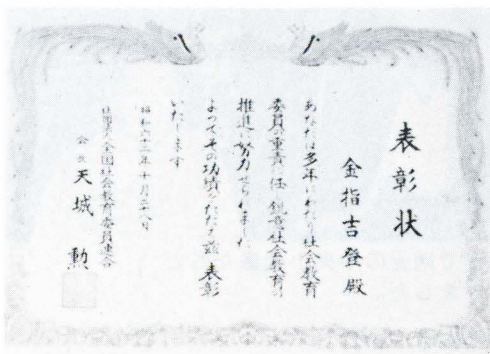 表彰状
金指吉登殿
あなたは多年にわたり社会教育
委員の重責に任じ鋭意社会教育の
推進に努力せられました
よってその功績をたたえ茲に表彰
いたします
昭和六十三年十月二十八日
社団法人全国社会教育委員連合
会長 天城 勲